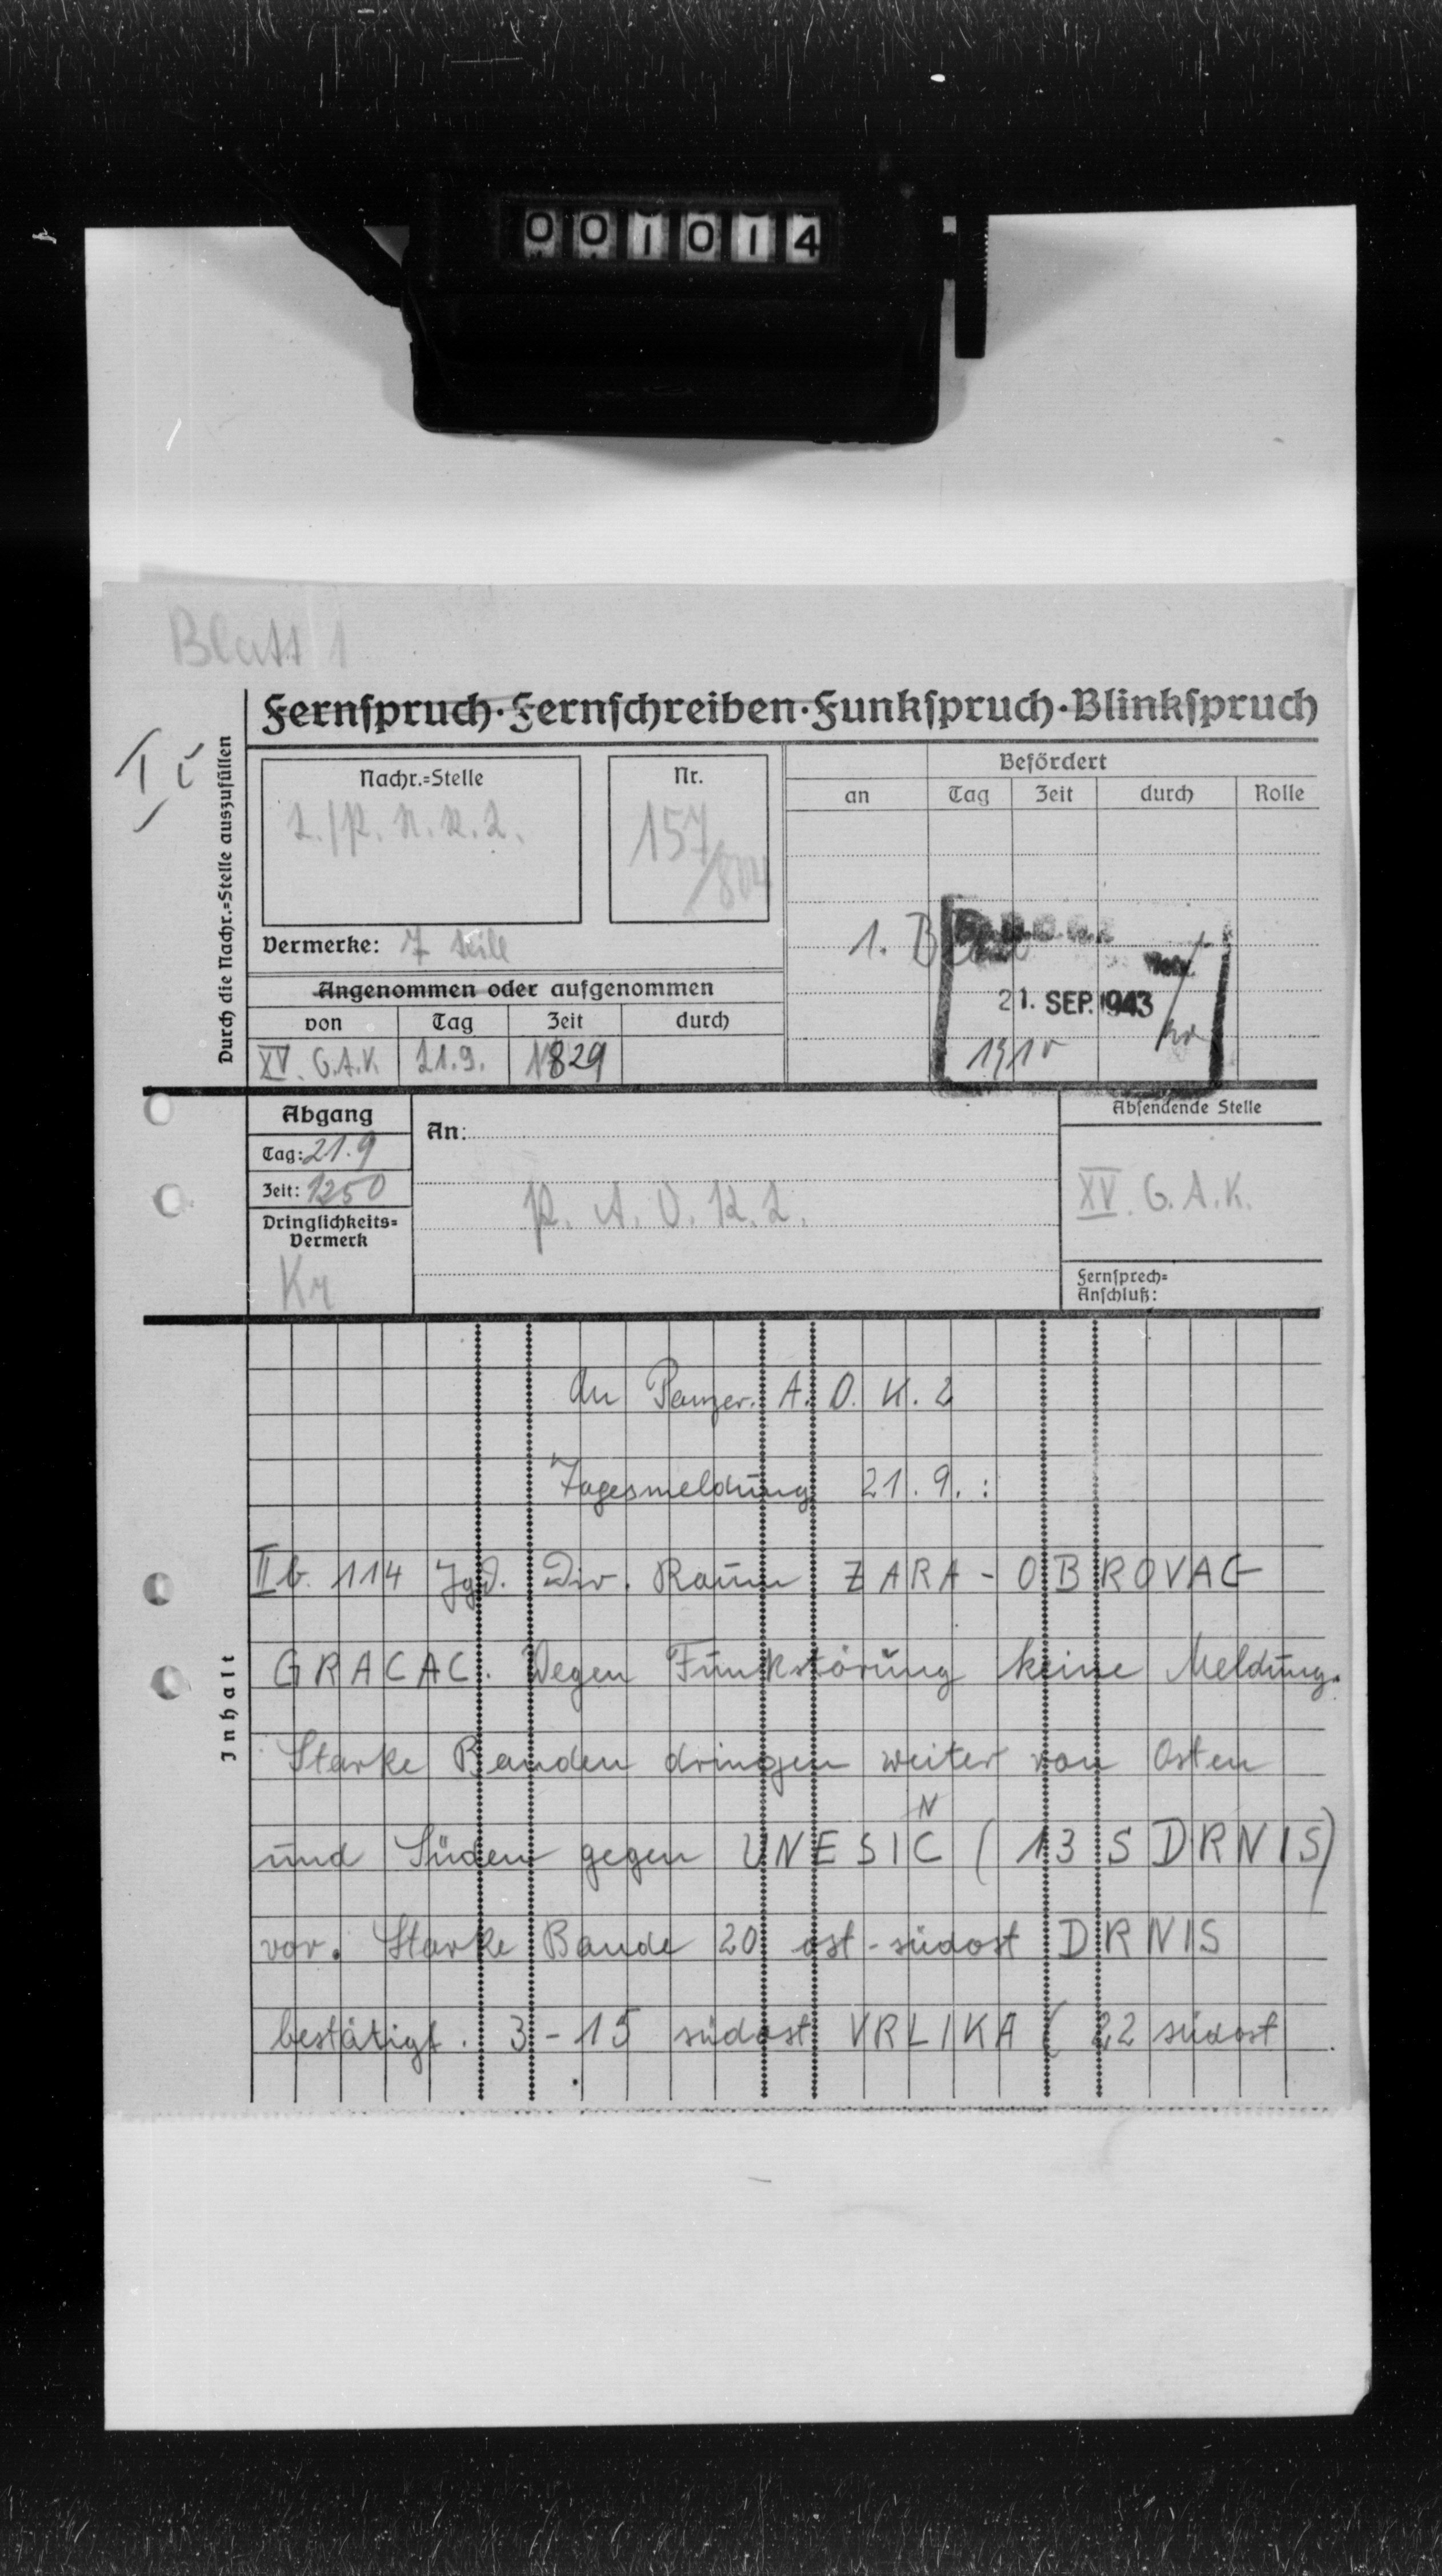 001014
Blatt 1
Fernspruch·Fernschreiben·Funkspruch·Blinkspruch
Ic
Durch die Nachr.=Stelle auszufüllen
Nachr.=Stelle
Nr.
Befördert
an Tag Zeit durch Rolle
2./P. N. R. 2.
157/804
Vermerke: 7 Teile
1.
21. SEP. 1943
Angenommen oder aufgenommen
von Tag Zeit durch
XV. G.A.K. 21.9. 1829
Abgang
An:
Absendende Stelle
Tag: 21.9
Zeit: 1250
P. A. O. K. 2.
XV. G. A. K.
Dringlichkeits=
Vermerk
Kr
Fernsprech=
Anschluß:
Inhalt
An Panzer. A. O. K. 2
Tagesmeldung 21. 9. :
II b. 114 Jgd. Div. Raum ZARA - OBROVAC
GRACAC. Wegen Funkstörung keine Meldung.
Starke Banden dringen weiter von Osten
N
und Süden gegen UNESIC ( 13 S DRNIS)
vor. Starke Bande 20 ost-südost DRNIS
bestätigt. 3 - 15 südost VRLIKA ( 22 südost